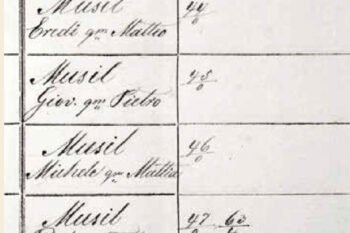 Musil 44
Eredi qm Matteo 0
Musil 45
Giov. qm Pietro 0
Musil 46
Michele qm Matteo 0
Musil 47 63